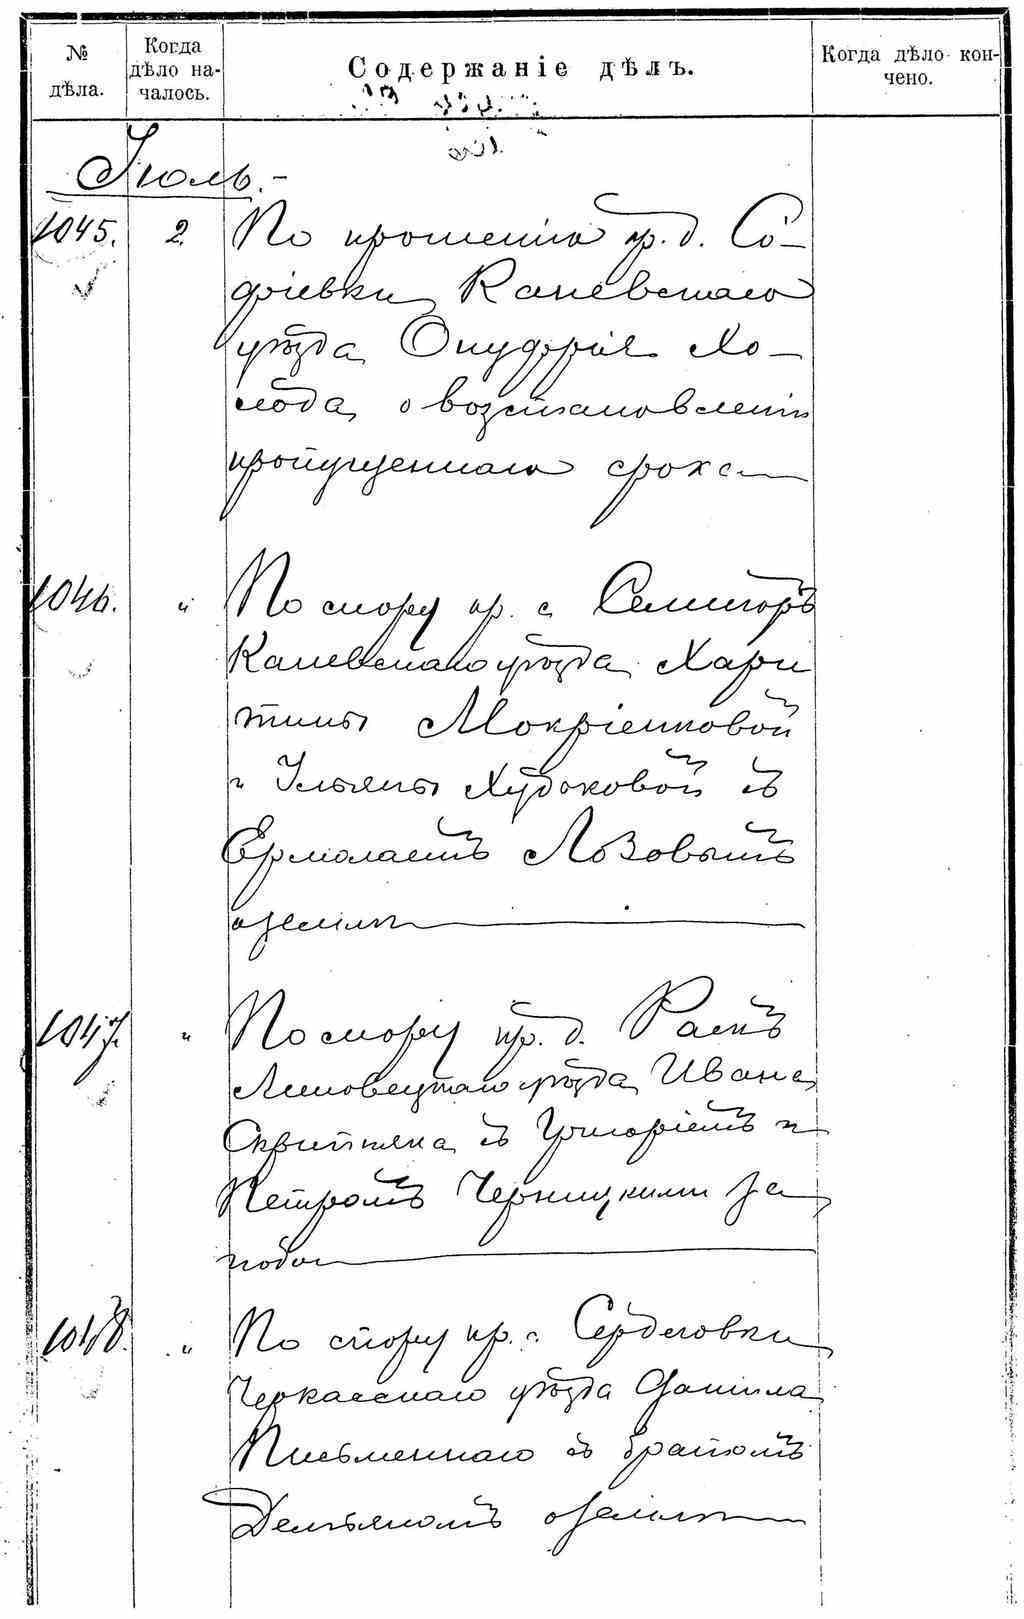 № дѣла.
Когда дѣло началось.
Содержаніе дѣлъ.
Когда дѣло кончено.
Іюль.-
1045. 2. По прошенію кр. д. Со-
фіевки Каневскаго
уѣзда Онуфрія Хо-
лода о возстановленіи
пропущеннаго срока
1046. " По спору кр. с. Селигоръ
Каневскаго уѣзда Хари
тины Мокріенковой
и Ульяны Худоковой съ
Ермолаемъ Лозовымъ
о землѣ
1047. " По спору кр. д. Раскъ
Липовецкаго уѣзда Ивана
Скрипника съ Григоріемъ и
Петромъ Черницкими за
побои
1048. " По спору кр. с. Сердеговки
Черкасскаго уѣзда Данила
Письменнаго съ братомъ
Демьяномъ о землѣ